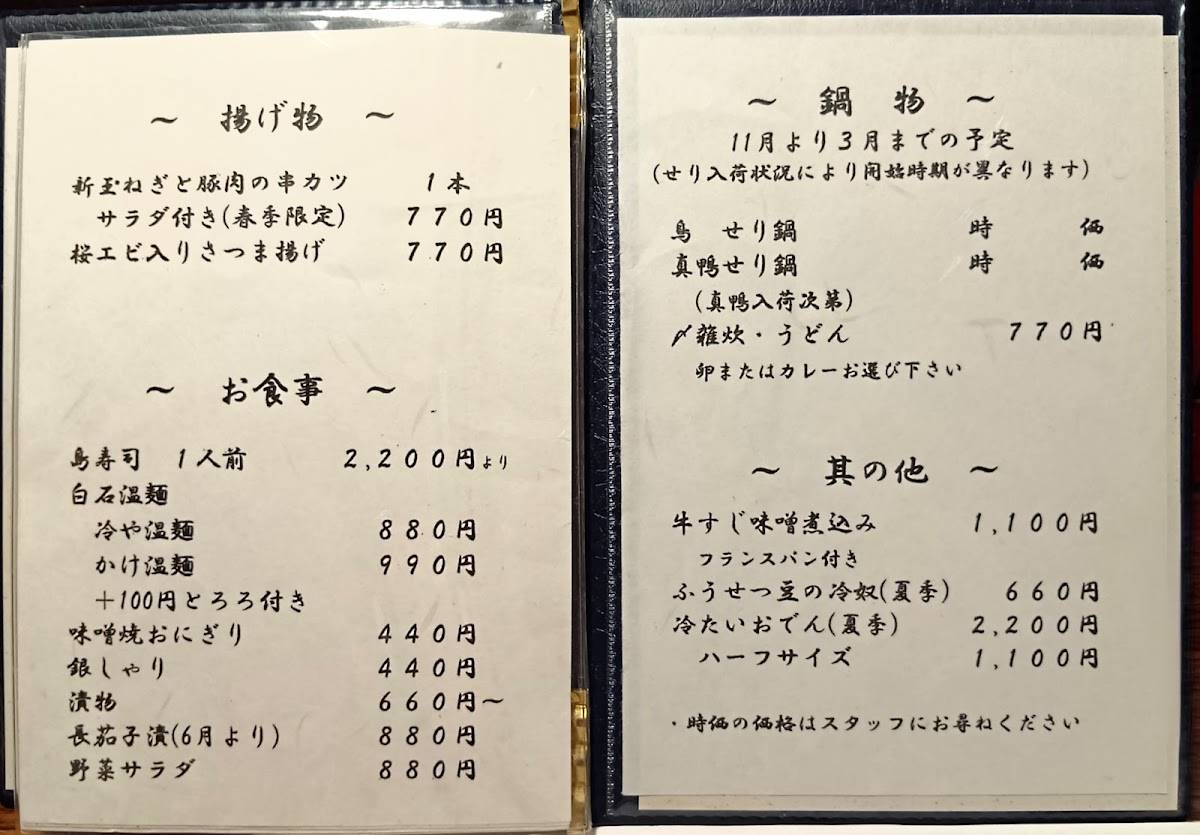 ～ 揚げ物 ～
新玉ねぎと豚肉の串カツ 1本
サラダ付き(春季限定) 770円
桜エビ入りさつま揚げ 770円
～ お食事 ～
鳥寿司 1人前 2,200円より
白石温麺
冷や温麺 880円
かけ温麺 990円
＋100円とろろ付き
味噌焼おにぎり 440円
銀しゃり 440円
漬物 660円～
長茄子漬(6月より) 880円
野菜サラダ 880円
～ 鍋 物 ～
11月より3月までの予定
(せり入荷状況により開始時期が異なります)
鳥 せり鍋 時 価
真鴨せり鍋 時 価
(真鴨入荷次第)
〆雑炊・うどん 770円
卵またはカレーお選び下さい
～ 其の他 ～
牛すじ味噌煮込み 1,100円
フランスパン付き
ふうせつ豆の冷奴(夏季) 660円
冷たいおでん(夏季) 2,200円
ハーフサイズ 1,100円
・時価の価格はスタッフにお尋ねください